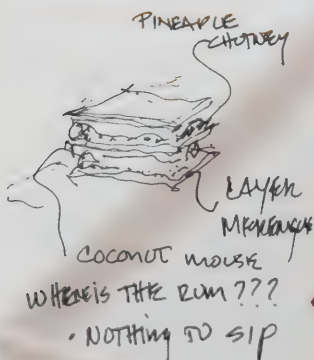 PINEAPLE
CHUTNEY
LAYER
MERENGUE
COCONUT MOUSE
WHERE IS THE RUM ???
• NOTHING TO SIP